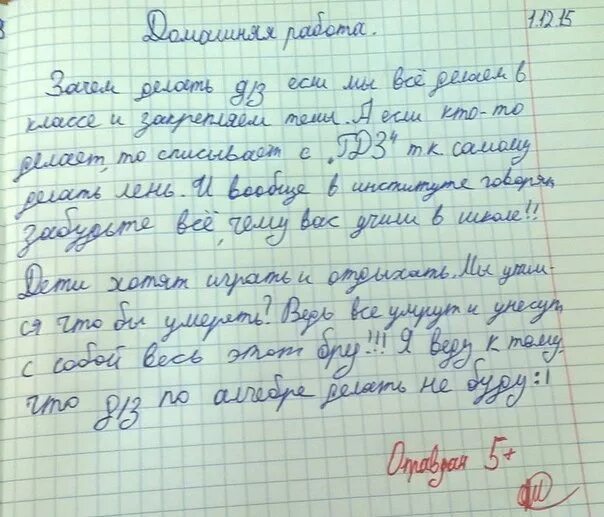 Домашняя работа. 1.12.15
Зачем делать д/з если мы всё делаем в
классе и закрепляем темы. А если кто-то
делает, то списывает с "ГДЗ" т.к самому
делать лень. И вообще в институте говорят,
забудьте всё, чему вас учили в школе!!
Дети хотят играть и отдыхать. Мы учим-
ся что бы умереть? Ведь все умрут и унесут
с собой весь этот бру!!! Я веду к тому,
что д/з по алгебре делать не буду :|
Оправдан 5+